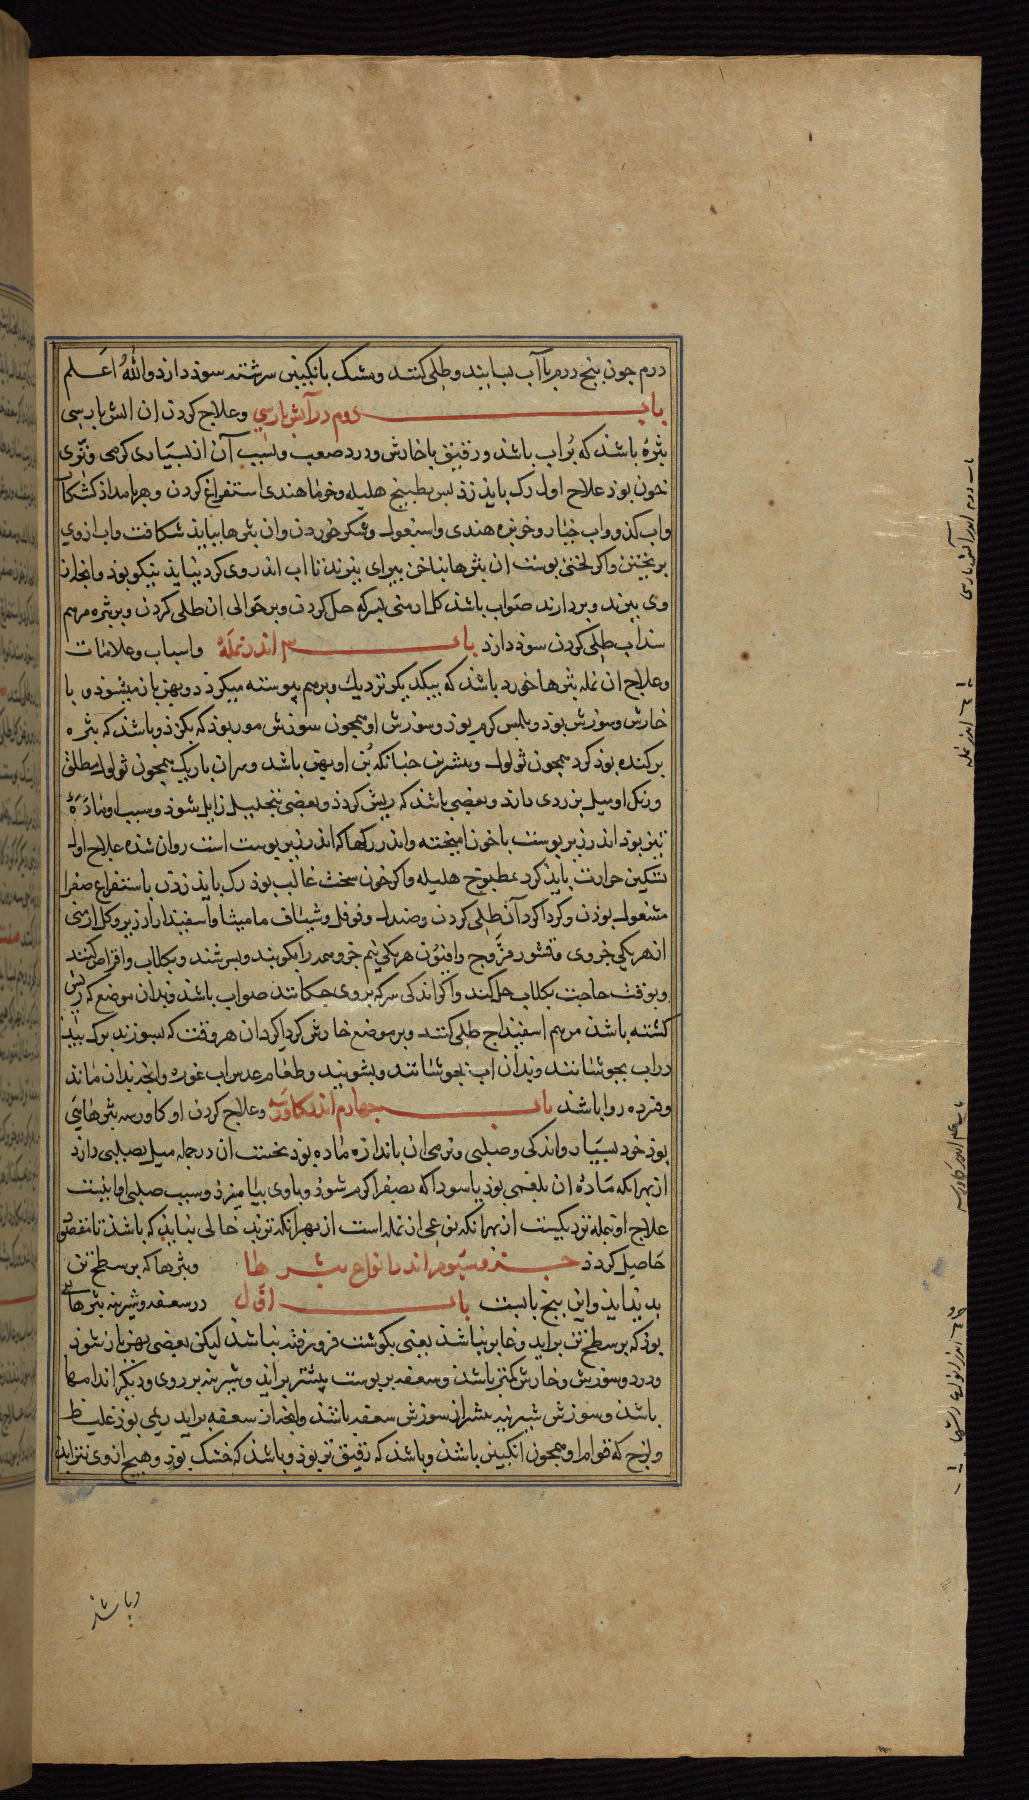 درم جون پنج درم باآب بسایند وطلی کنند ومشک بانکبین سرشته سوذ دارذ واللهُ اعلم
باب دوم در آتش پارسی وعلاج کردن ان اتش پارسی
بثرهٔ باشذ که پُراب باشذ ورقیق باخارش ودرد صعب وسبب آن از بسیاری کرمی وتری
خون بوذ علاح اول رک بایذ زذ بس بطبیخ هلیله وخرما هندی استفراغ کردن وهر بامداذ کشکاب
واب کذو واب خیار وخربزه هندی واسبغول وشکر خوردن وان بثرها ببایذ شکافت واب ازوی
بریختن واکر لختی بوست ان بثرها بناخن پیرای ببرند تا اب اندروی کرد نیایذ نیکو بوذ وانجه از
وی ببرند وبردارند صواب باشذ کل ارمنی بسرکه حل کردن وبرحوالی ان طلی کردن وبربثره مرهم
سنداب طلی کردن سوذ دارذ باب سیم اندر نمله واسباب وعلامات
وعلاج ان نمله بثرها خورد باشذ که بیکدیکر نزدیک وبرهم پیوسته میکرذد وبهن باز میشوذ و با
خارش وسوزش بوذ وبلمس کرم بوذ وسوزش او همجون سوزش مور بوذ که بکزذ وباشذ که بثره
برکنده بوذ کرد همجون ثولول وبیشترین جنانکه بُن او بهن باشد وسران باریک همجون ثولول مطلق
ورنک او میل بزردی دارذ وبعضی باشذ که ریش کردذ وبعضی بتحلیل زایل شوذ وسبب او مادّهٔ
تیز بوذ اندر زیر بوست باخون امیخته واندر رکها که اندر زیر بوست است روان شذه علاج اول
تسکین حرارت بایذ کرد بمطبوخ هلیله واکر خون سخت غالب بوذ رک بایذ زدن باستفراغ صفرا
مشغول بوذن وکرداکرد آن طلی کردن وصندل وفوفل وشیاف مامیثا واسفیذاج ارزیز وکل ارمنی
ازهریکی جزوی وقشور مزّوج وافیون هریکی نیم جزو همه را بکوبند وبسرشند وبکلاب واقراص کنند
وبوقت حاجت بکلاب حل کنند واکر اندکی سرکه بروی جکانند صواب باشذ وبدان موضع که ریش
کشته باشذ مرهم اسفیداج طلی کنند وبرموضع خارش کرداکردان هروقت که بسوزد برک بید
دراب بجوشانند وبدان اب بجوشانند وبشویند وطعام عدس اب غوره وانجه بدان ماند
وفسرده روا باشذ باب جهارم اندر کاورسه وعلاج کردن او کاورسه بثرهایی
بوذ خرد بسیار واندکی وصلبی ونرمی ان باندازه ماده بوذ نخست ان درجمله میل بصلبی دارذ
ازبهر انکه مادّه ان بلغمی بوذ یا سودا که بصفرا کرم شوذ وباوی بیامیزذ وسبب صلبی اما بنسبت
علاج او بنمله نزدیکست ازبهر انکه نوعی از نمله است ازبهر انکه تربذ خالی نبایذ که باشذ تا مقصوذ
حاصل کردذ جزو سیوم اندر انواع بثرها وبثرها که بر سطح تن
بدید ایذ واین پنج بابست باب اوّل در سعفه وشیرینه بثرهائی
بوذ که بر سطح تن برایذ وغایر نباشذ یعنی بکوشت فرو رفته نباشذ لیکن بعضی بهن باز شوذ
ودرد وسوزش وخارش کمتر باشذ وسعفه بر پوست بیشتر برایذ وشیرینه بر روی ودیکر اندامها
باشذ وسوزش شیرینه بیشتر از سوزش سعفه باشذ وانجه از سعفه برایذ ریمی بوذ غلیظ
ولزج که قوام او همجون انکبین باشذ وباشذ که رقیق تر بوذ وباشذ که خشک بوذ وهیج ازوی نترابذ
وباشذ
باب دوم اندر آتش پارسی
باب ۳ اندر نمله
باب جهارم اندر کاورسه
جزو ۳ اندر انواع بثرها